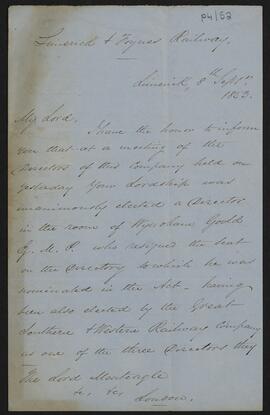 P4/52
Limerick & Foynes Railway.
Limerick, 8th Septr.
1853.
My Lord,
I have the honor to inform
you that at a meeting of the
Directors of this Company held on
yesterday Your Lordship was
unanimously elected a Director
in the room of Wyndham Goold
M. P. who resigned the seat
on the Directory to which he was
nominated in the Act - having
been also elected by the Great
Southern & Western Railway Company
as one of the three Directors they
The Lord Monteagle
&c. &c.
London.